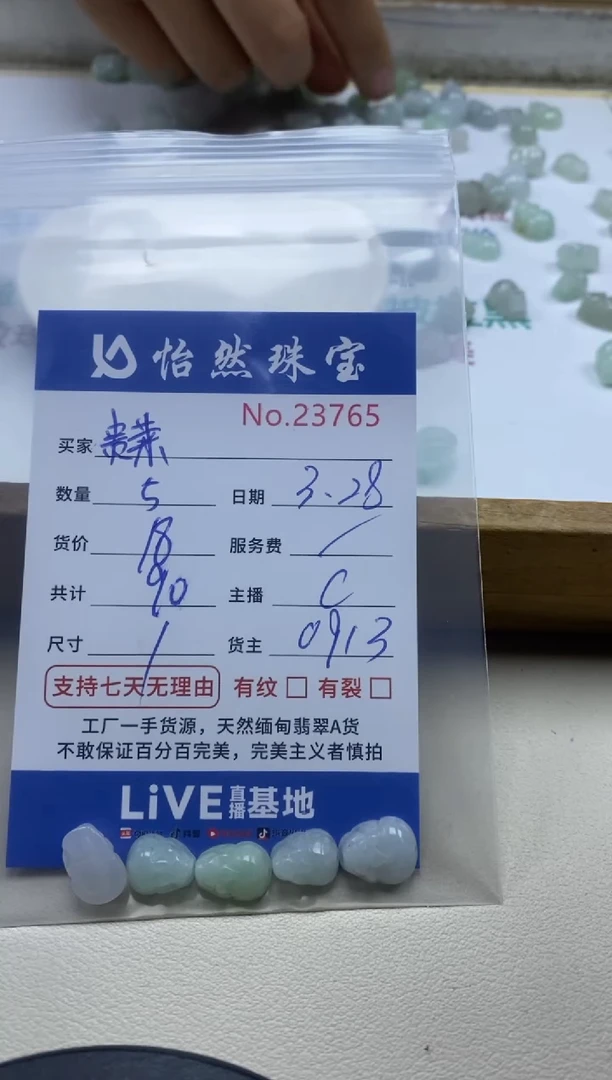 怡然珠宝
No.23765
买家
数量 5 日期 3.28
货价 18 服务费 /
共计 90 主播 C
尺寸 / 货主 0913
支持七天无理由 有纹 □ 有裂 □
工厂一手货源，天然缅甸翡翠A货
不敢保证百分百完美，完美主义者慎拍
LiVE直播基地